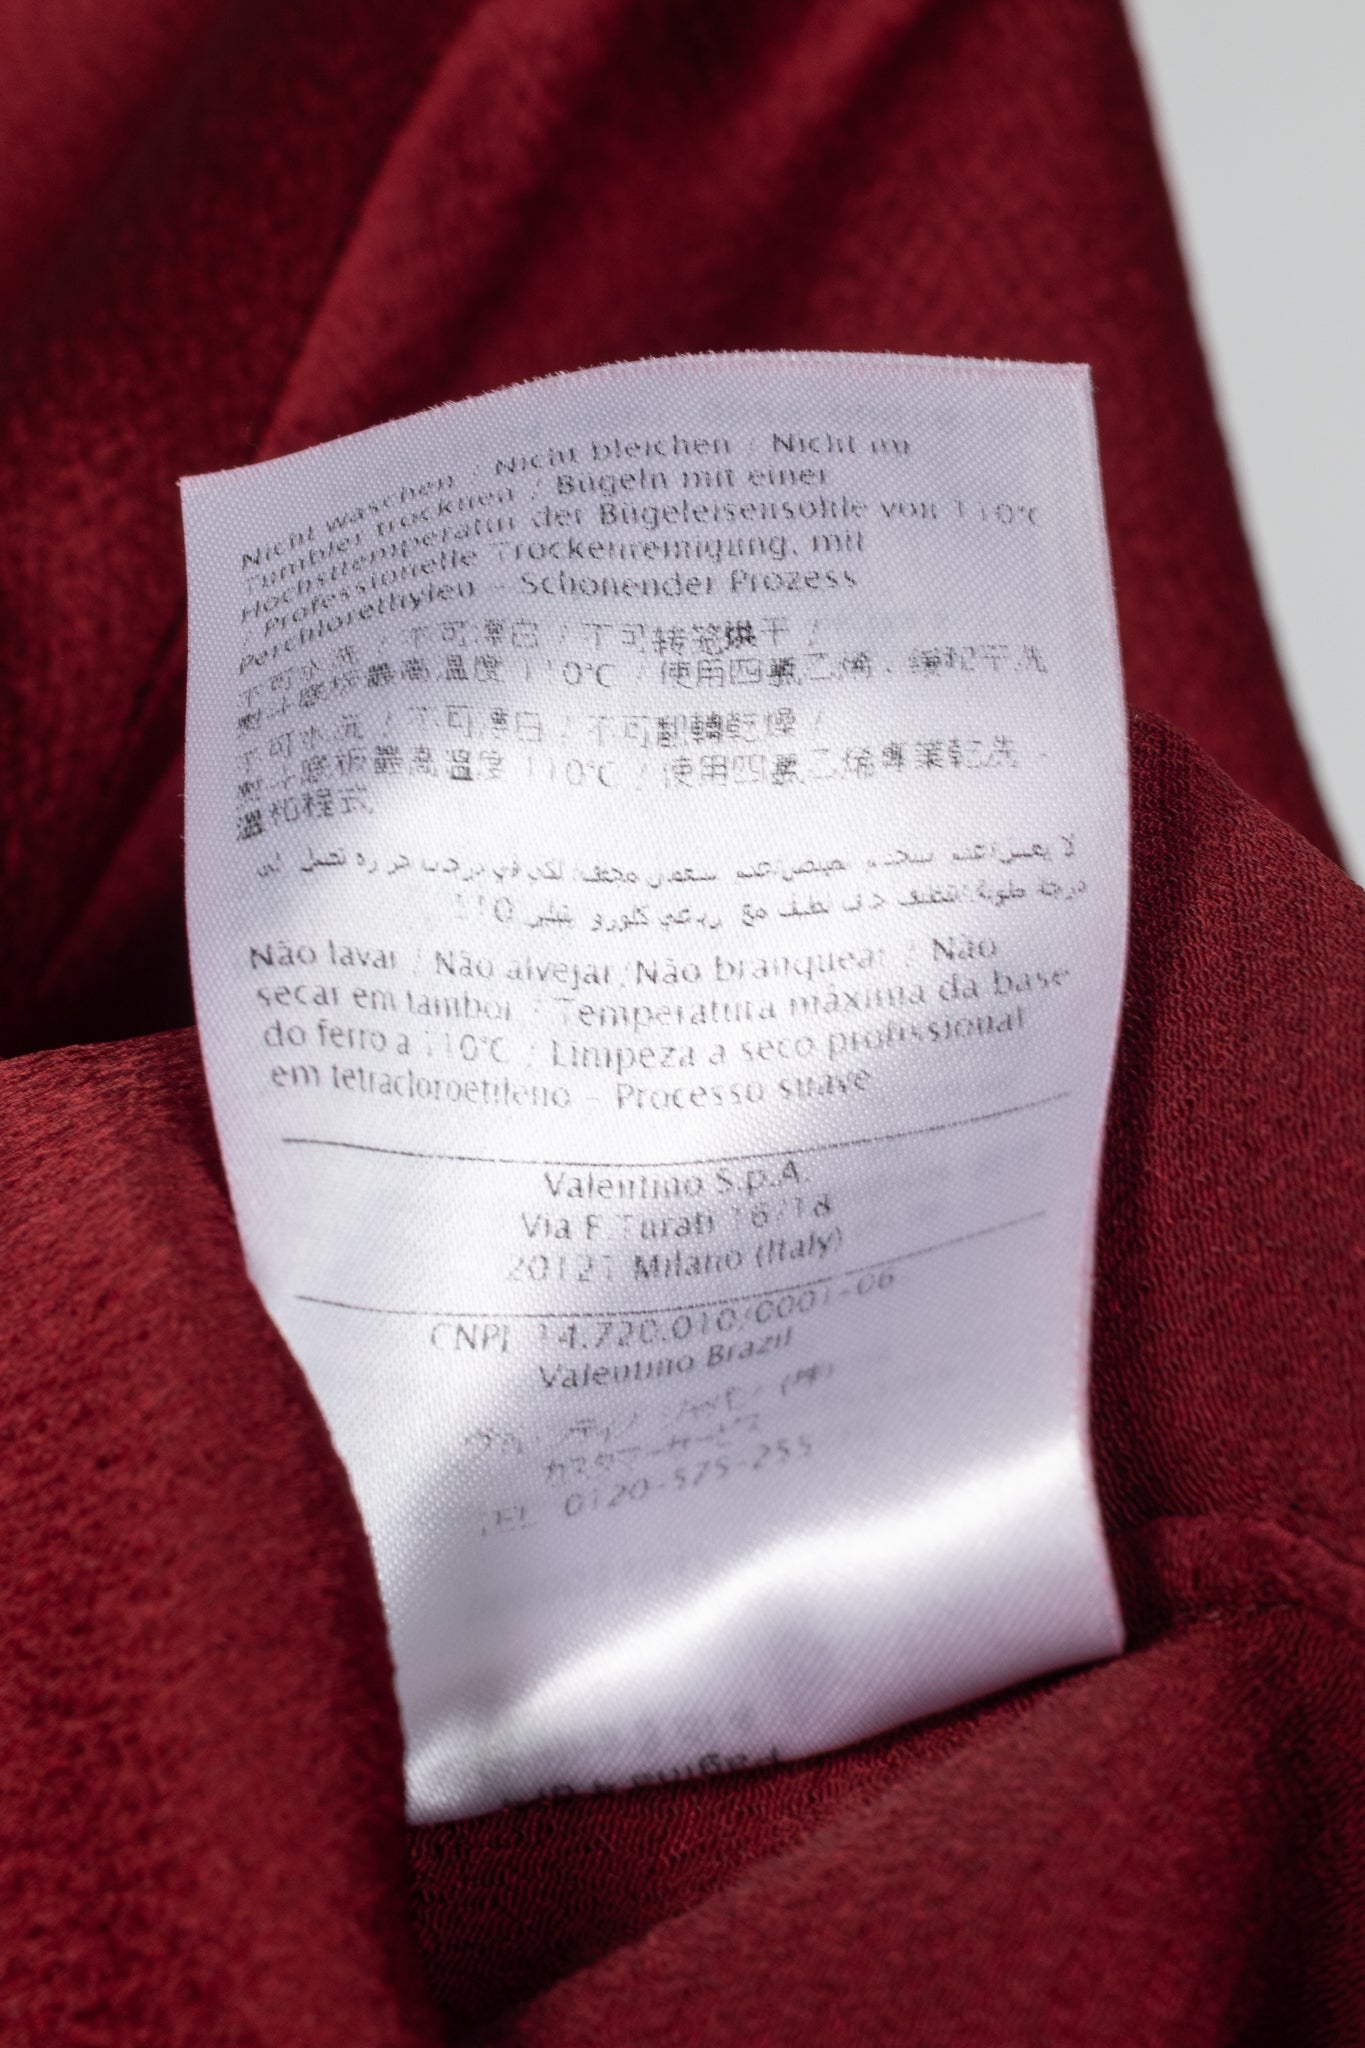 Nicht waschen / Nicht bleichen / Nicht im
Tumbler trocknen / Bügeln mit einer
Höchsttemperatur der Bügeleisensohle von 110°C
/ Professionelle Trockenreinigung, mit
Perchlorethylen - Schonender Prozess
不可水洗 / 不可漂白 / 不可转笼烘干 /
熨斗底板最高温度 110°C / 使用四氯乙烯,
不可水洗 / 不可漂白 / 不可翻轉乾燥 /
熨斗底板最高溫度 110°C / 使用四氯乙烯專業乾洗 ,
溫和程式.
110
Não lavar / Não alvejar/Não branquear / Não
secar em tambor / Temperatura máxima da base
do ferro a 110°C / Limpeza a seco profissional
em tetracloroetileno - Processo suave
Valentino S.p.A.
Via F.Turati 16/18
20121 Milano (Italy)
CNPJ 14.720.010/0001-06
Valentino Brazil
(株)
カスタマーサービス
TEL 0120-575-255